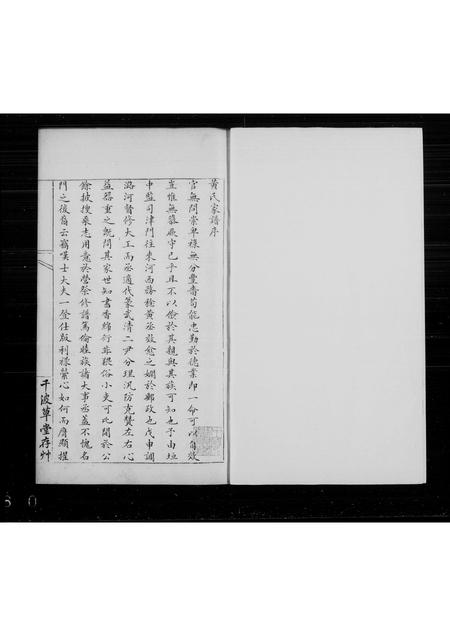 黃氏家譜序
官無問崇卑祿無分豐嗇苟能忠勤於德業即一命可以自效
豈惟無慕厥守已乎且不以儉於其親與其族可知也予由垣
中監司津門往來河西務稔黃丞敏愈之嫺於郵政也戊申調
潞河督修大工而丞適代篆武清二尹分理汛防克贊左右心
益器重之既閱其家世知書香綿衍非猥俗小吏可比聞於公
餘披搜乘志用意於營祭修譜篤倫睦族諸大事丞蓋不愧名
門之後裔云竊嘆士大夫一登仕版利祿縈心如何而膺顯擢
千波草堂存艸
80